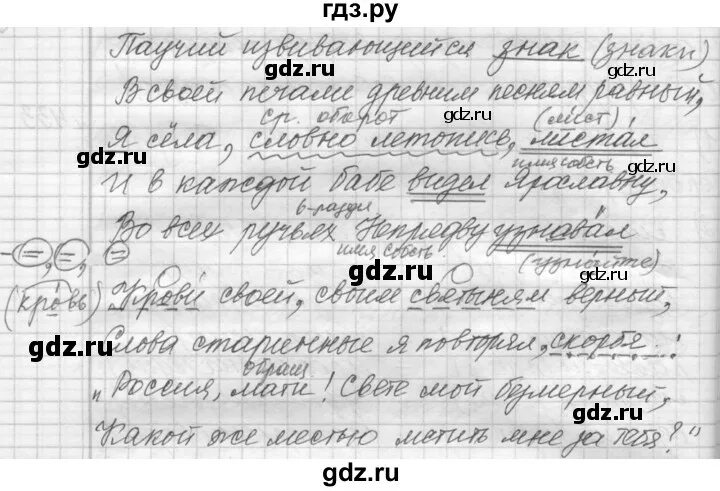 гдз.ру
Паучий извивающейся знак (знаки)
gdz.ru gdz.ru
В своей печали древним песням равный,
ср. оборот (лист)
Я сёла, словно летопись, листал
имя собств
И в каждой бабе видел Ярославну,
в-разди
Во всех ручьях Непрядву узнавал
имя собств. (узнайте)
gdz.ru gdz.ru
(кровь) Крови своей, своим святыням верный,
gdz.ru
Слова старинные я повторял, скорбя:
обращ.
"Россия, мати! Свете мой безмерный,
gdz.ru gdz.ru
Какой же местью мстить мне за тебя?"
гдз.ру